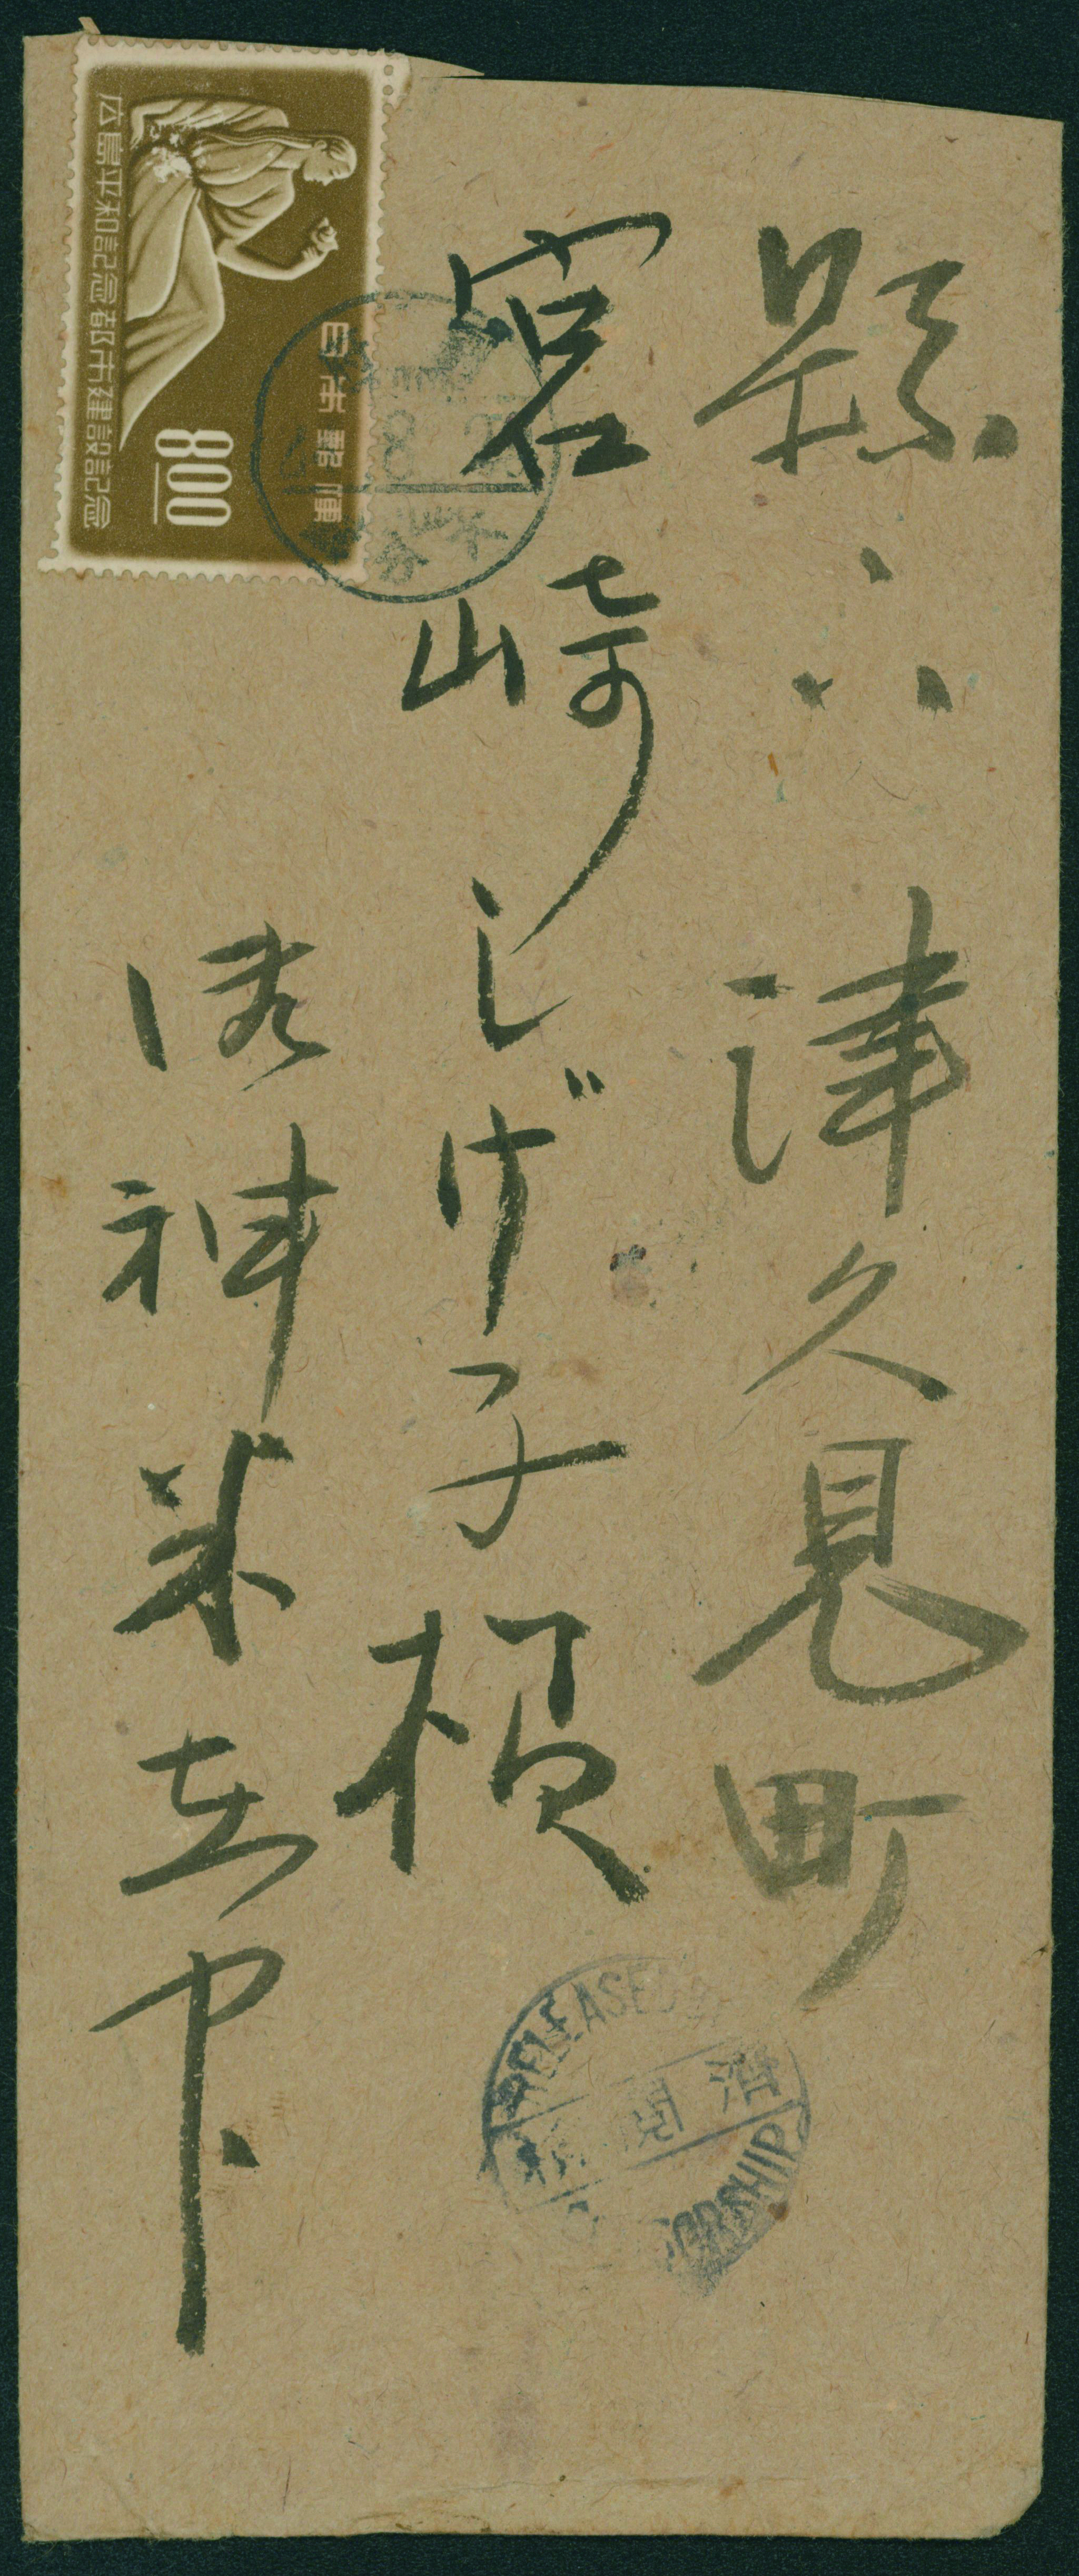 縣下津久見町
宮崎しげ子様
御神米在中
広島平和記念都市建設記念
日本郵便
8.00
RELEASED BY
検閲済
CENSORSHIP